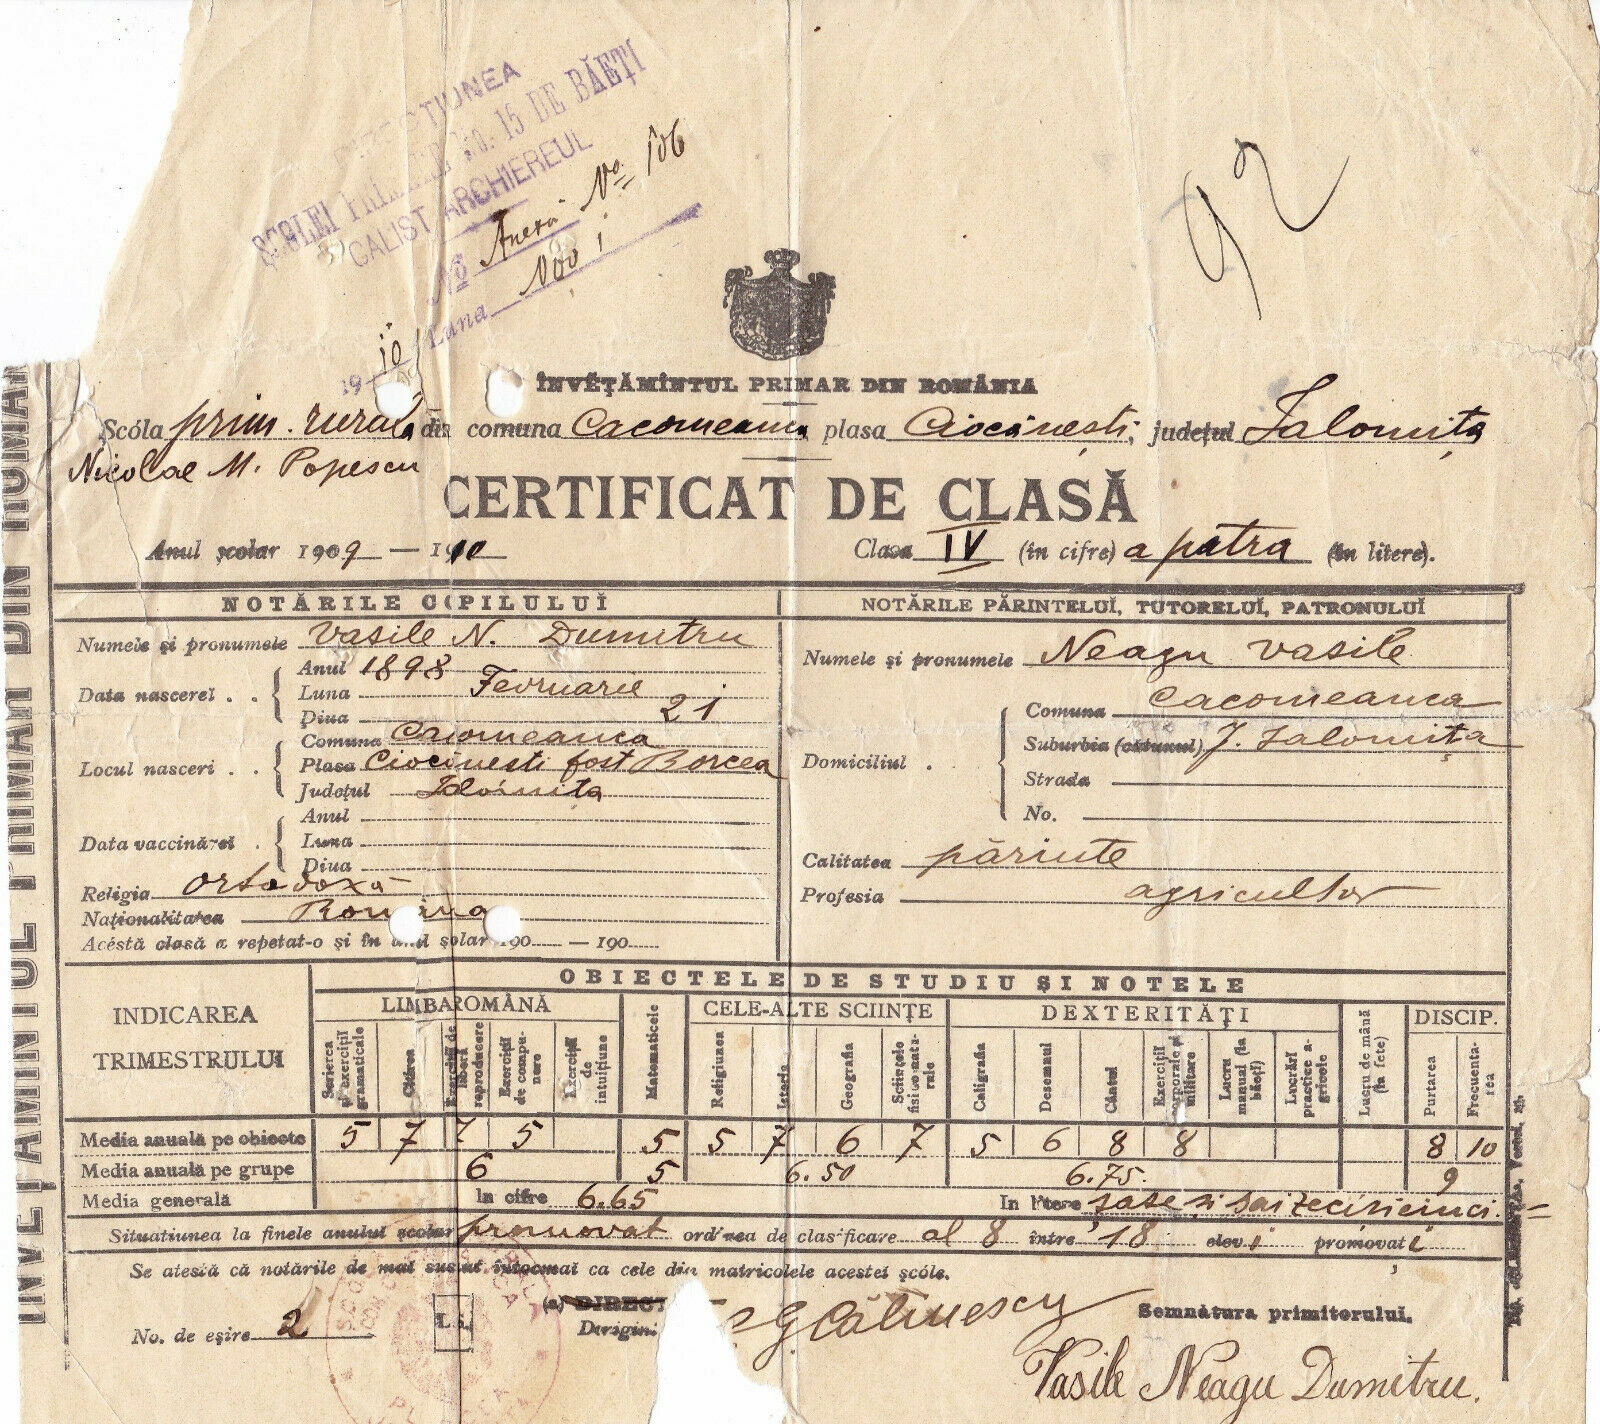 DIRECȚIUNEA
ȘCOLEI PRIMARE No. 15 DE BĂEȚI
CALIST ARCHIEREUL
No Anexă No. 106
Luna
1910
92
ÎNVĔȚĂMÎNTUL PRIMAR DIN ROMÂNIA
Scóla prim. rurala din comuna Cacomeanca plasa Ciocănești, județul Ialomița
Nicolae M. Popescu
CERTIFICAT DE CLASĂ
Anul școlar 1909 — 1910 Clasa IV (în cifre) a patra (în litere).
NOTĂRILE COPILULUI
NOTĂRILE PĂRINTELUĬ, TUTORELUĬ, PATRONULUĬ
Numele și pronumele Vasile N. Dumitru
Numele și pronumele Neagu Vasile
Data nascereĭ . . Anul 1898
Luna Februarie
Ḑiua 21
Locul nasceri . . Comuna Cacomeanca
Plasa Ciocănesti fost Borcea
Județul Ialomița
Domiciliul . Comuna Cacomeanca
Suburbia (cătunul) J. Ialomița
Strada
No.
Data vaccinăreĭ . Anul
Luna
Ḑiua
Calitatea părinte
Religia ortodoxă
Profesia agricultor
Naționalitatea Româna
Acéstă clasă a repetat-o și în anul școlar 190 — 190
OBIECTELE DE STUDIU ȘI NOTELE
INDICAREA TRIMESTRULUI
LIMBA ROMÂNĂ
Scrierea și exercițiĭ gramaticale
Citirea
Exercițiĭ de liberă reproducere
Exercițiĭ de compunere
Exercițiĭ de intuițiune
Matematicele
CELE-ALTE SCIINȚE
Religiunea
Istoria
Geografia
Sciințele fisico-naturale
DEXTERITĂȚI
Caligrafia
Desemnul
Cântul
Exercițiĭ corporale și militare
Lucru manual (la băețĭ)
Lucrărĭ practice agricole
Lucru de mână (la fete)
DISCIP.
Purtarea
Frecuentarea
Media anuală pe obiecte 5 7 7 5 5 5 7 6 7 5 6 8 8 8 10
Media anuală pe grupe 6 5 6.50 6.75 9
Media generală In cifre 6.65 In litere șase și șaizecișicinci
Situațiunea la finele anuluĭ școlar promovat ordinea de clasificare al 8 între 18 elevi promovați
Se atestă că notările de mai sus sunt întocmai ca cele din matricolele acestei școle.
No. de eșire 2
L. S.
(a) DIRECT
Dirigin
G Călinescu
Semnătura primitorului.
Vasile Neagu Dumitru.
ÎNVEȚĂMÎNTUL PRIMAR DIN ROMÂN